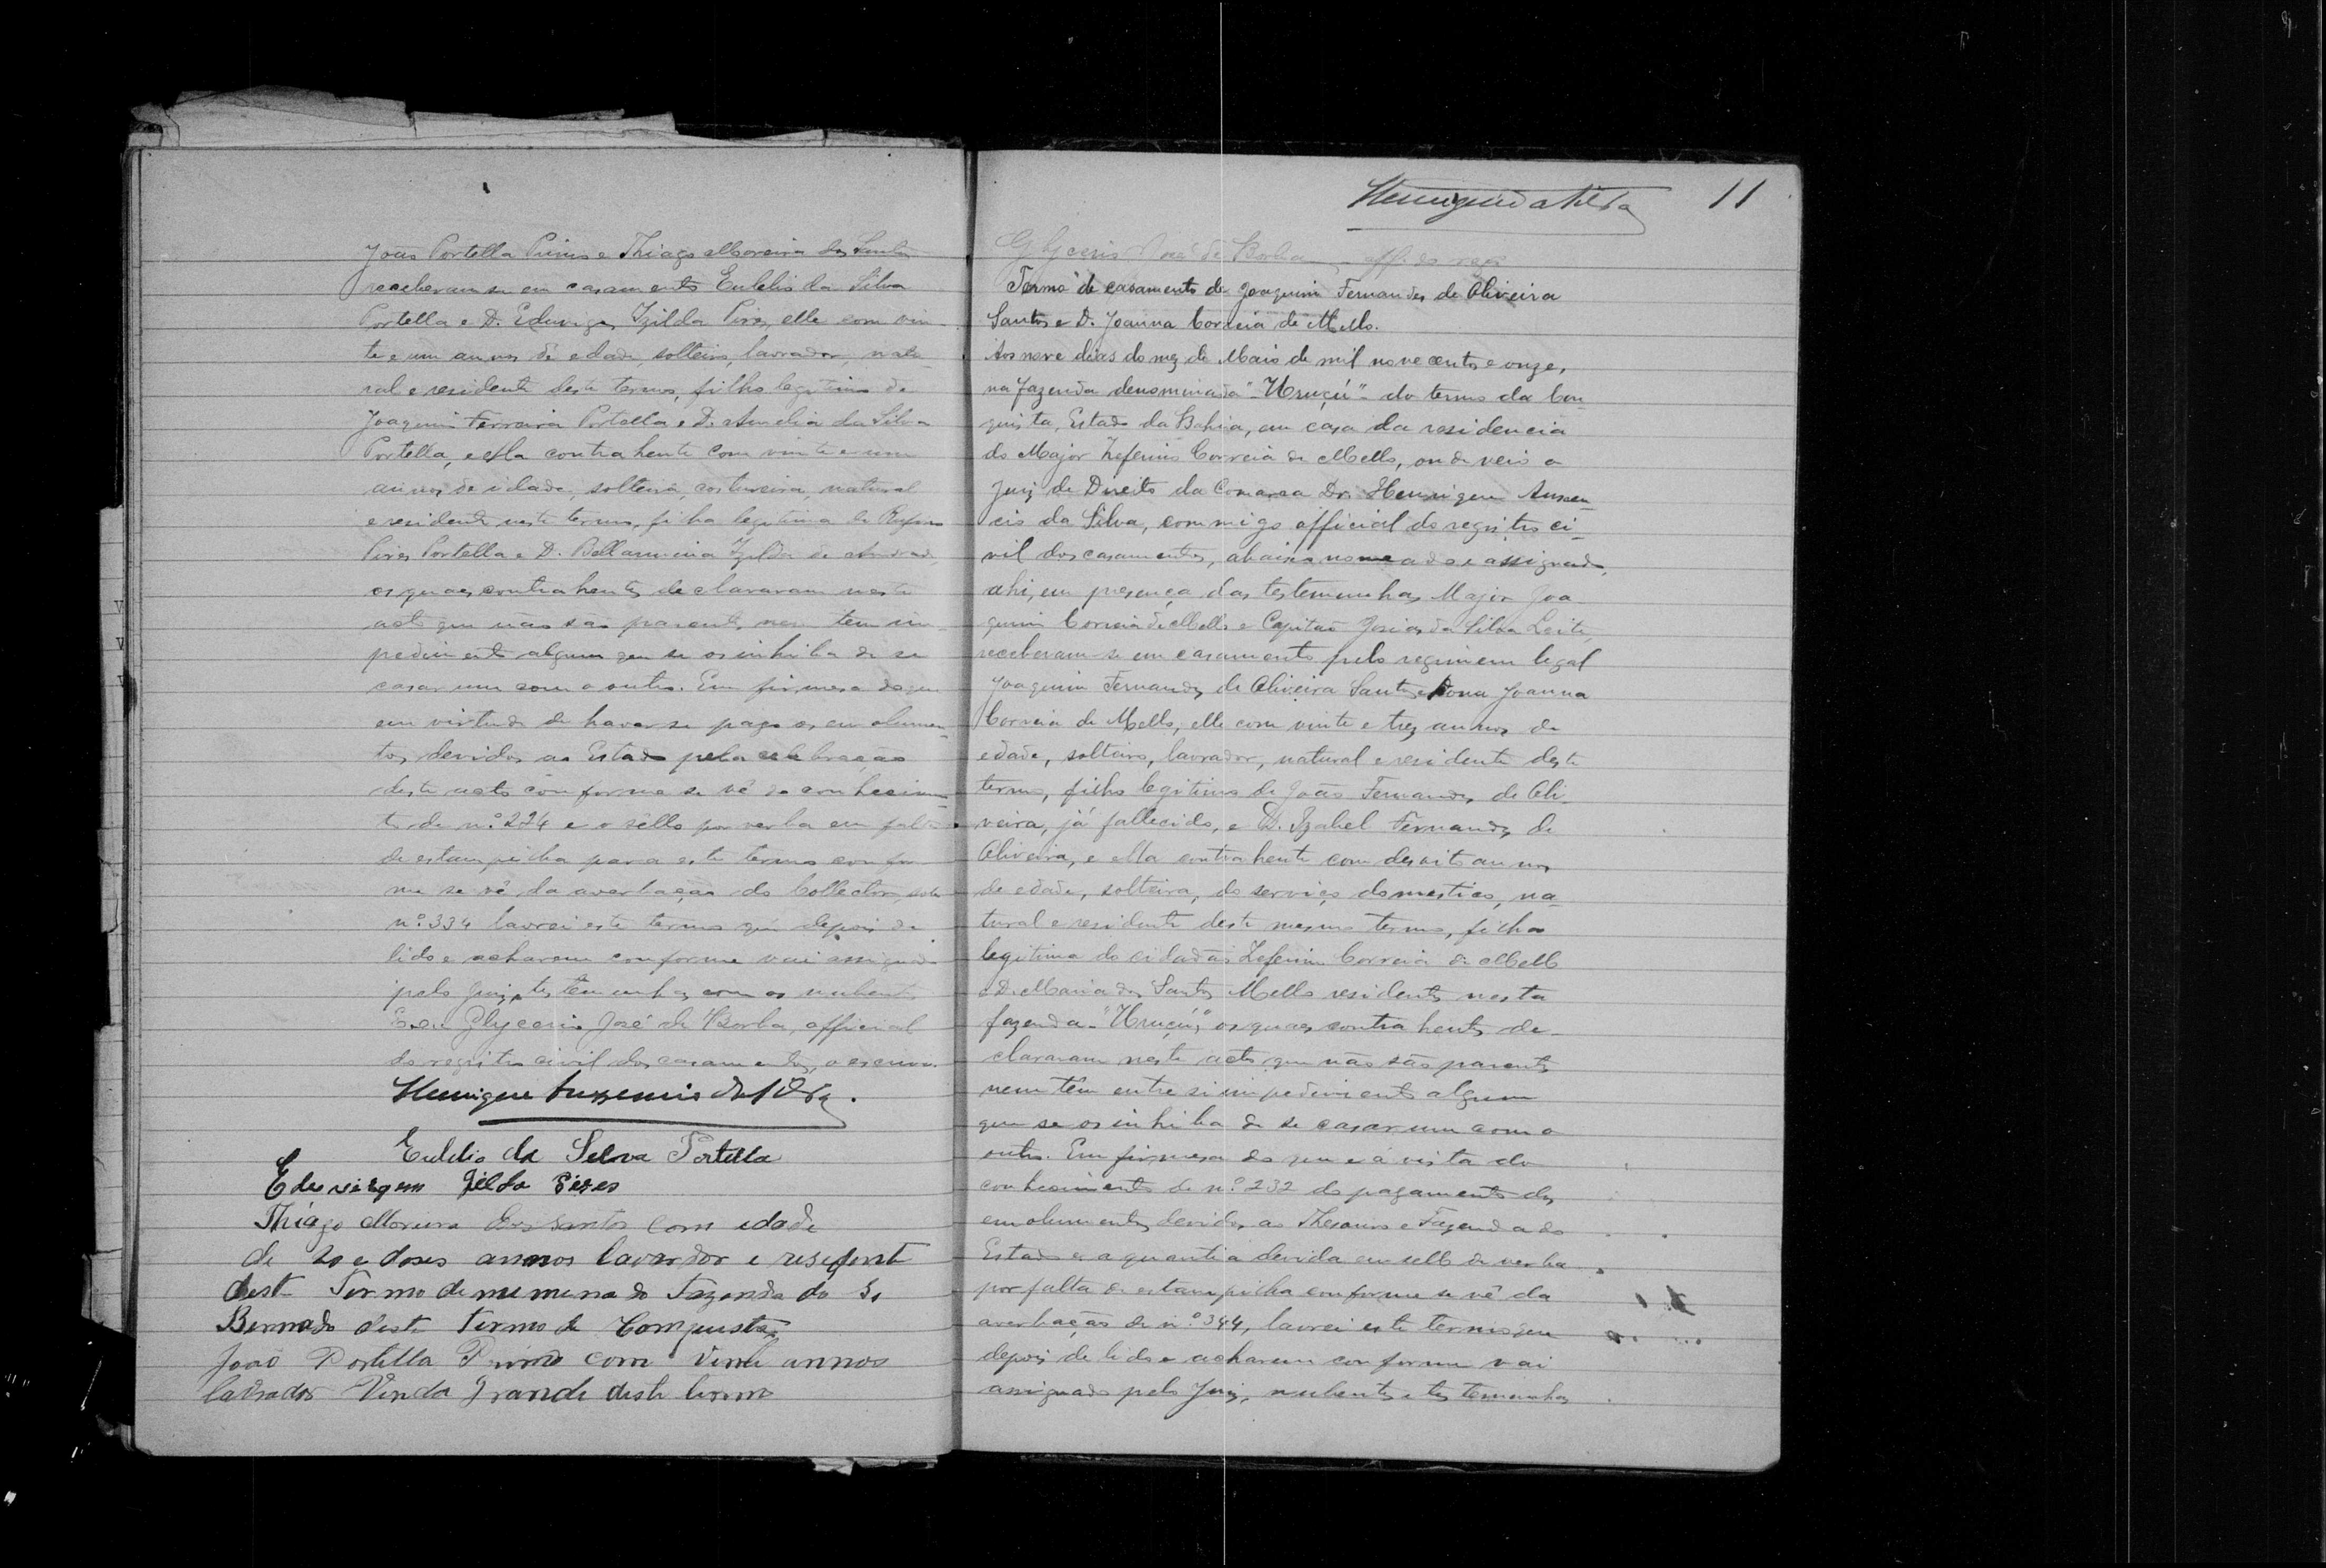 João Portella Primo e Thiago Moreira dos Santos
receberam se em casamento Eulelio da Silva
Portella e D. Eduviges Izilda Pires, elle com vin-
te e um annos de edade, solteiro, lavrador, natu-
ral e residente deste termo, filho legitimo de
Joaquim Ferreira Portella e D. Amelia da Silva
Portella, e ella contrahente com vinte e um
annos de idade, solteira, costureira, natural
e residente neste termo, filha legitima de Rufino
Pires Portella e D. Bellarmina Izilda de Andrade,
os quaes contrahentes declararam neste
acto que não são parentes, nem têm im-
pedimento algum que se os inhiba de se
casar um com o outro. Em firmesa do que
em virtude de haver se pago os emolumen-
tos devidos ao Estado pela celebração
deste acto conforme se vê do conhecimen-
to de nº 224 e o sello por verba em falta
de estampilha para este termo confor-
me se vê da averbação do Collector, sob
nº 334 lavrei este termo que depois de
lido e acharem conforme vai assignado
pelo Juiz, testemunhas com os nubentes
E eu Glycerio José de Borba, official
do registro civil dos casamentos, o escrevi.
Henrique Auxencio da Silva.
Eulelio da Selva Portella
Eduvirgem Izilda Pires
Thiago Moreira dos Santos com idade
de 20 e doses annos lavardor e residente
dest Termo demumenado Fazenda do S.
Bernado deste termo de Comquista,
João Portella Primo com vinte annos
labrador Venda Grande deste termo
Henrique da Silva 11
Glycerio José de Borba, off. do regº
Termo de casamento de Joaquim Fernandes de Oliveira
Santos e D. Joanna Correia de Mello.
Aos nove dias do mez de Maio de mil novecentos e onze,
na fazenda denominada "Uruçú" do termo da Con-
quista, Estado da Bahia, em casa da residencia
do Major Zeferino Correia de Mello, onde veio o
Juiz de Direito da Comarca Dr. Henrique Auxen-
cio da Silva, commigo official do registro ci-
vil dos casamentos, abaixo nomeado e assignado,
ahi, em presença das testemunhas Major Joa-
quim Correia de Mello e Capitão Josias da Silva Leite,
receberam-se em casamento pelo regimem legal
Joaquim Fernandes de Oliveira Santos e Dona Joanna
Correia de Mello, elle com vinte e tres annos de
edade, solteiro, lavrador, natural e residente deste
termo, filho legitimo de João Fernandes de Oli-
veira, já fallecido, e D. Izabel Fernandes de
Oliveira, e ella contrahente com desoito annos
de edade, solteira, do serviço domestico, na-
tural e residente deste mesmo termo, filha
legitima do cidadão Zeferino Correia de Mello
e D. Maria dos Santos Mello residentes nesta
fazenda "Uruçú," os quaes contrahentes de-
clararam neste acto que não são parentes
nem têm entre si impedimento algum
que se os inhiba de se casar um com o
outro. Em firmesa do que e á vista do
conhecimento de nº 232 do pagamento dos
emolumentos devidos ao Thesouro e Fazenda do
Estado e a quantia devida em sello de verba
por falta de estampilha conforme se vê da
averbação de nº 344, lavrei este termo que
depois de lido e acharem conforme vai
assignado pelo Juiz, nubentes e testemunhas